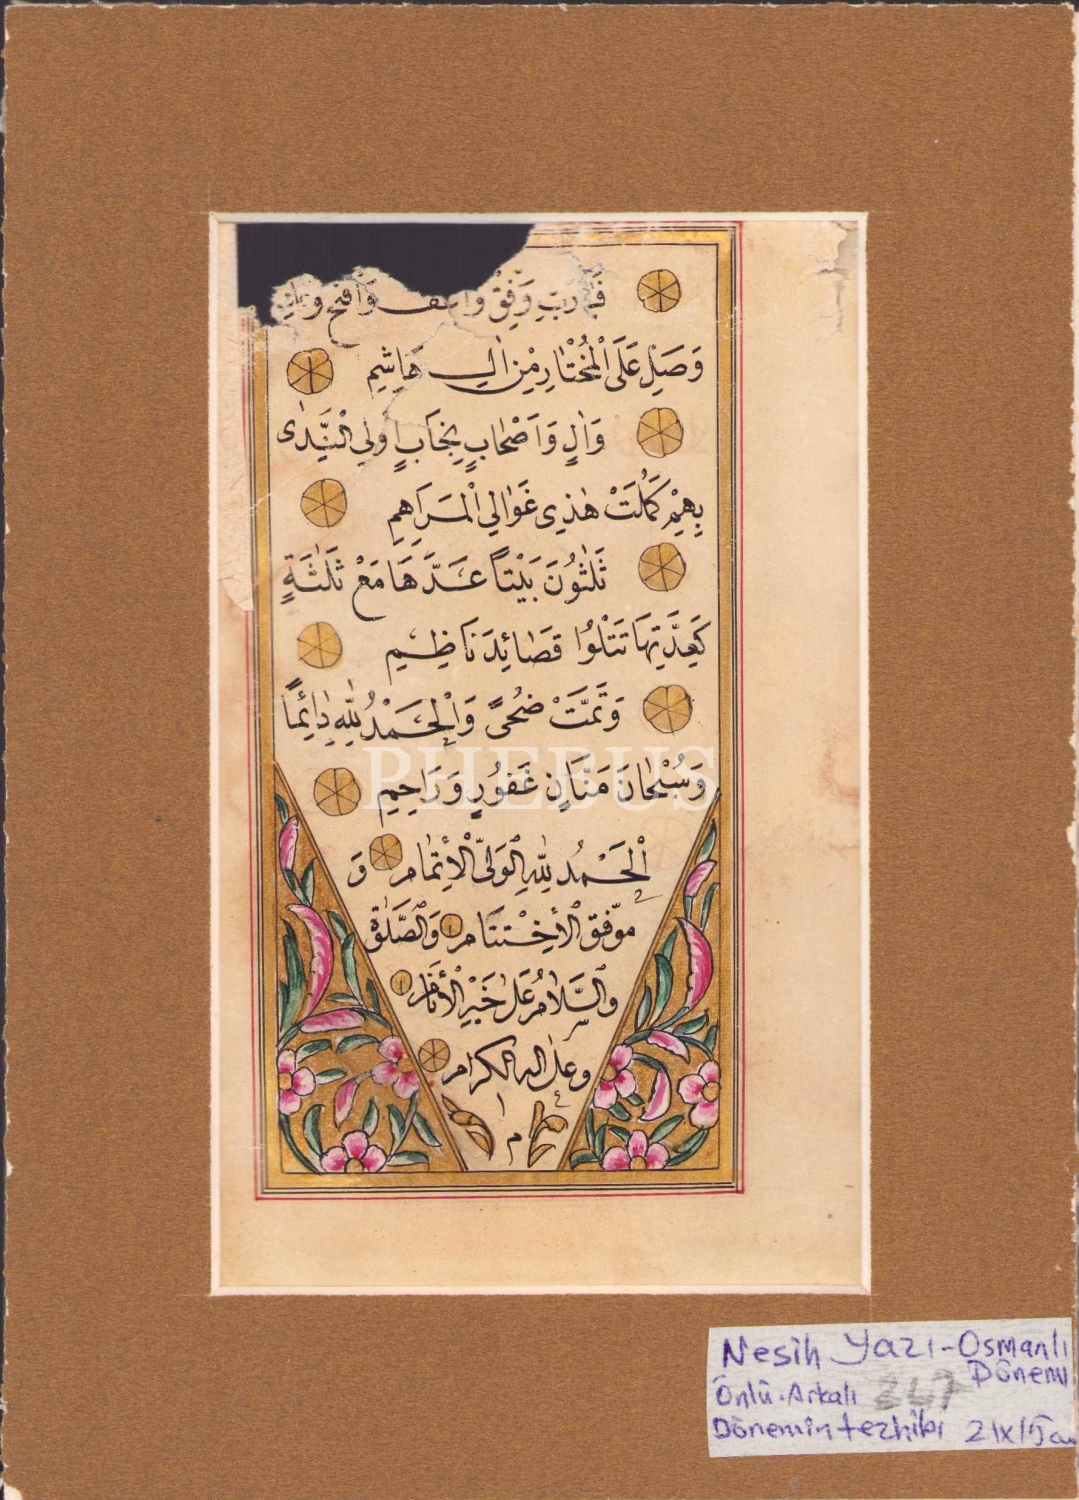 رَبِّ وَفِّقْ وَافْتَحْ
وَصَلِّ عَلَى الْمُخْتَارِ مِنْ اٰلِ هَاشِمِ
وَاٰلٍ وَاَصْحَابٍ بِخَابٍ اُولِي النَّدٰى
بِهِمْ كَمُلَتْ هٰذِى غَوَالِي الْمَرَاهِمِ
ثَلٰثُونَ بَيْتاً عَدَّهَا مَعْ ثَلٰثَةٍ
كَعِدَّتِهَا تَتْلُوا قَصَائِدَ نَاظِمِ
وَتَمَّتْ ضُحًى وَالْحَمْدُ لِلّٰهِ دَائِمًا
وَسُبْحَانَ مَنَّانٍ غَفُورٍ وَرَاحِمِ
اَلْحَمْدُ لِلّٰهِ الْوَلِىِّ الْاِتْمَامِ وَ
مُوَفِّقِ الْاِخْتِتَامِ وَالصَّلٰوةُ
وَالسَّلَامُ عَلٰى خَيْرِ الْاَنَامِ
وعلى اله الكرام
م
PHEBUS
Nesih Yazı-Osmanlı
Dönemi
Önlü-Arkalı 267
Dönemin tezhibi 21x15cm